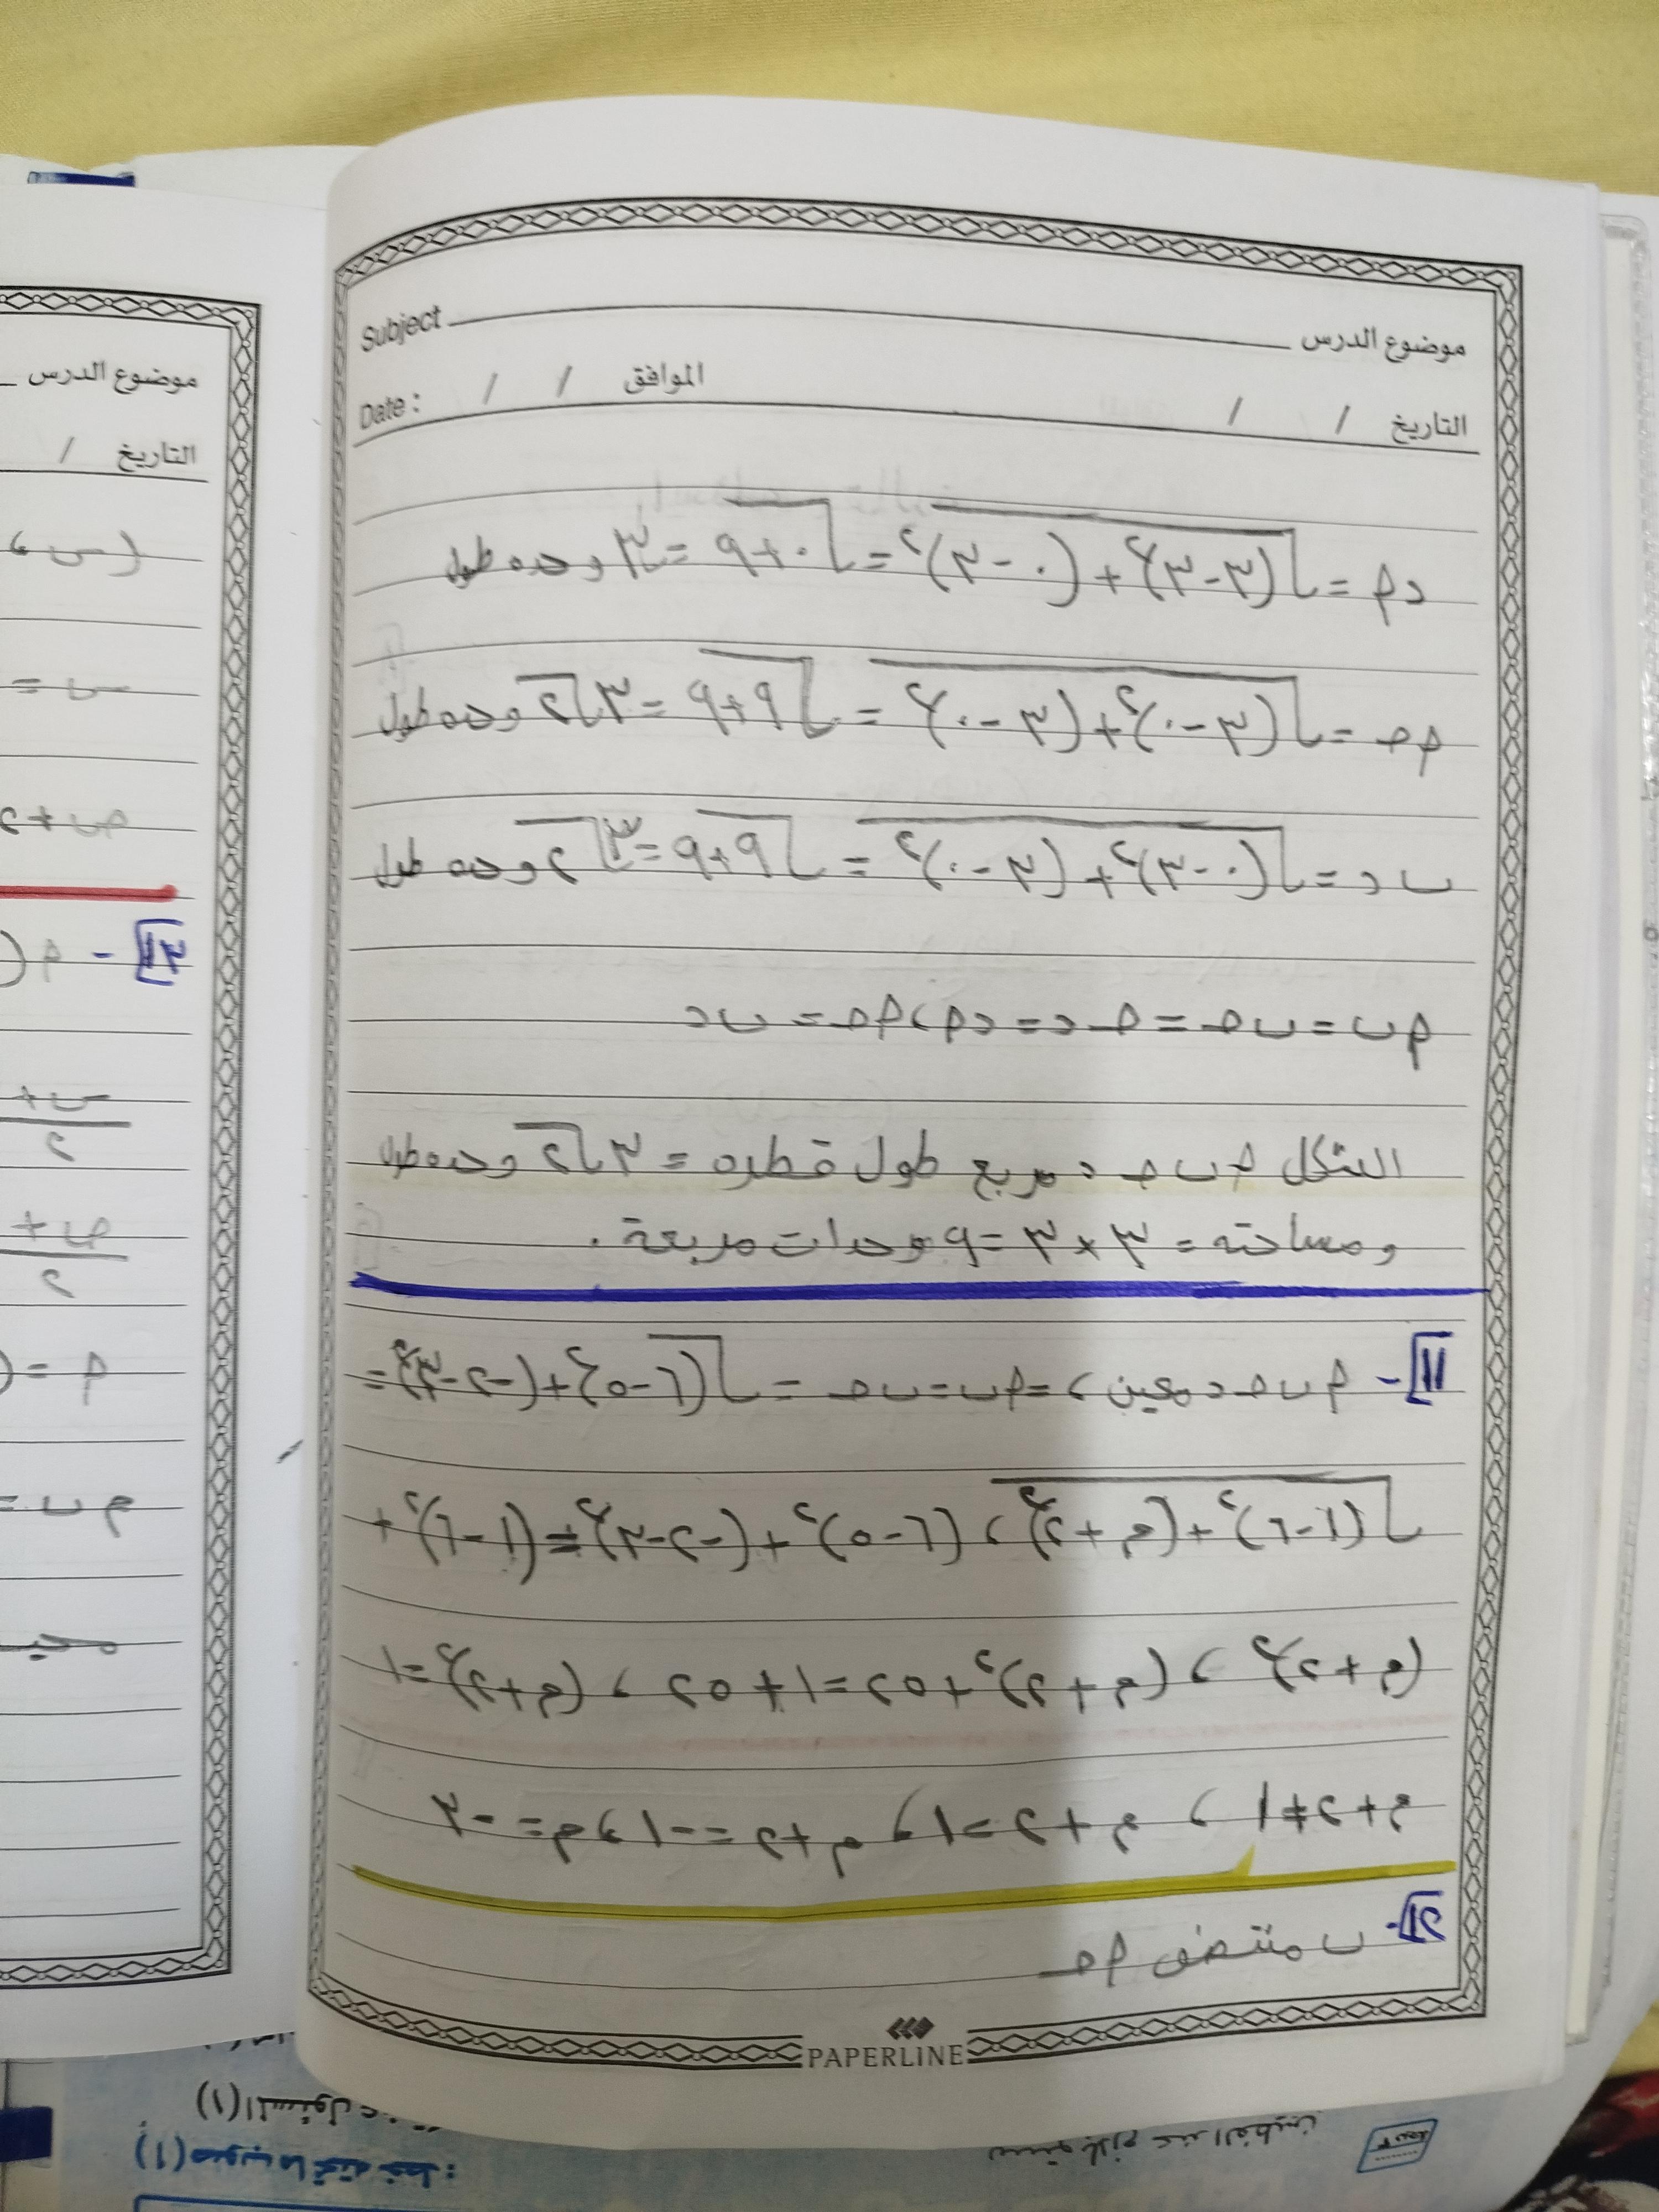 موضوع الدرس Subject
التاريخ / / الموافق / / Date :
د م = √(٣-٣)٢ + (٠-٣)٢ = √٠+٩ = ٣ وحده طول
م حـ = √(٣-٠)٢ + (٣-٠)٢ = √٩+٩ = ٣√٢ وحده طول
ب د = √(٠-٣)٢ + (٣-٠)٢ = √٩+٩ = ٣√٢ وحده طول
م ب = ب حـ = حـ د = د م ، م حـ = ب د
الشكل م ب حـ د مربع طول قطره = ٣√٢ وحده طول
ومساحته = ٣ × ٣ = ٩ وحدات مربعة .
١١- م ب حـ د معين ، = م ب = ب حـ = √(٦-٥)٢ + (-٢-٣)٢ =
√(١-٦)٢ + (م+٢)٢ ، (٦-٥)٢ + (-٢-٣)٢ = (١-٦)٢ +
(م+٢)٢ ، (م+٢)٢ + ٢٥ = ١ + ٢٥ ، (م+٢)٢ = ١
م+٢ ≠ ١ ، م+٢ = ١ ، م+٢ = -١ ، م = -٣
١٢- ب منتصف م حـ
PAPERLINE
موضوع الدرس
التاريخ /
(س ،
س =
ص + ٢
٣- م (
س +
٢
ص +
٢
م = (
م ب =
محيـ